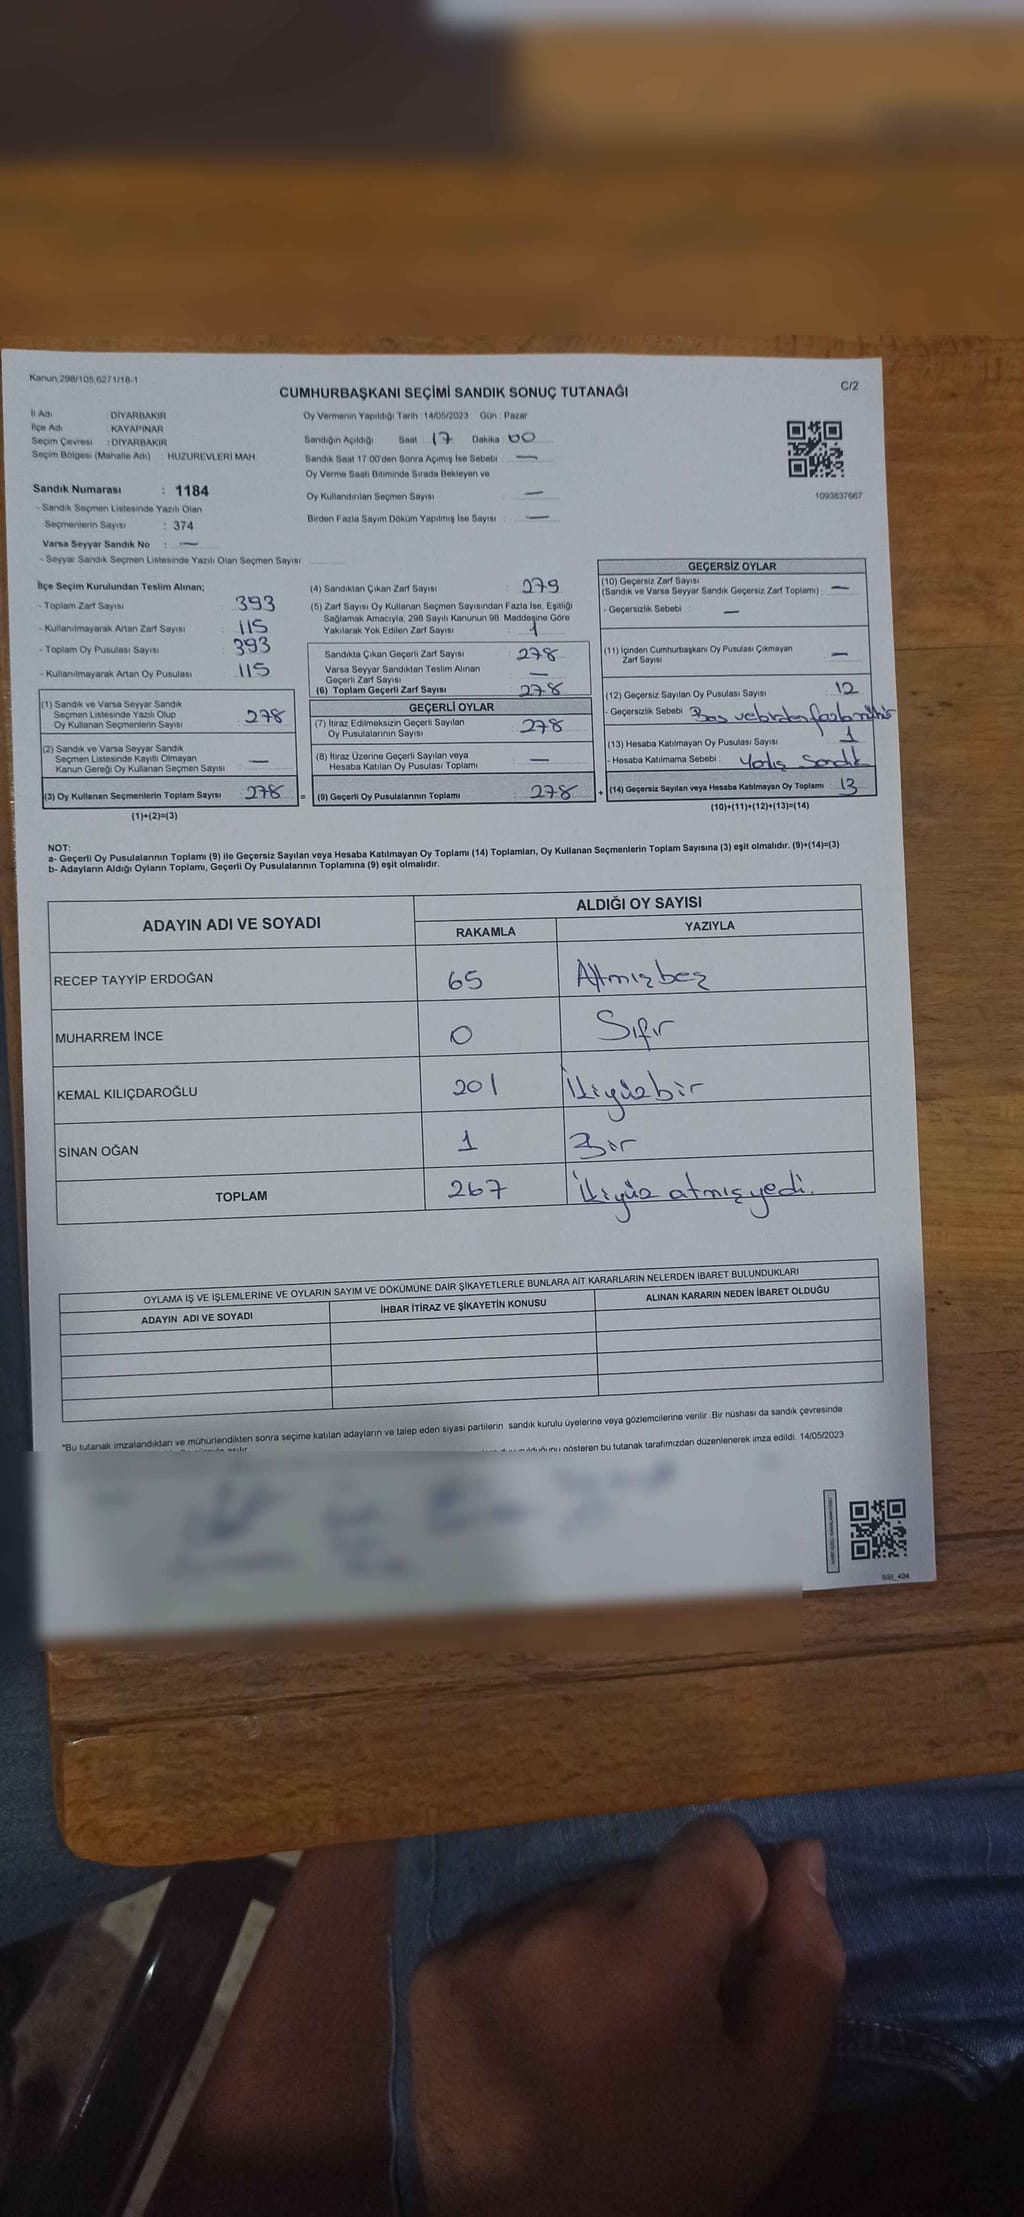 Kanun 298/105,6271/18-1
C/2
CUMHURBAŞKANI SEÇİMİ SANDIK SONUÇ TUTANAĞI
İl Adı : DİYARBAKIR
İlçe Adı : KAYAPINAR
Seçim Çevresi : DİYARBAKIR
Seçim Bölgesi (Mahalle Adı) : HUZUREVLERİ MAH.
Oy Vermenin Yapıldığı Tarih : 14/05/2023 Gün : Pazar
Sandığın Açıldığı Saat 17 Dakika : 00
Sandık Saat 17:00'den Sonra Açımış İse Sebebi : —
Oy Verme Saati Bitiminde Sırada Bekleyen ve
Oy Kullandırılan Seçmen Sayısı : —
Birden Fazla Sayım Döküm Yapılmış İse Sayısı : —
1093637667
Sandık Numarası : 1184
- Sandık Seçmen Listesinde Yazılı Olan
Seçmenlerin Sayısı : 374
Varsa Seyyar Sandık No : —
- Seyyar Sandık Seçmen Listesinde Yazılı Olan Seçmen Sayısı:
İlçe Seçim Kurulundan Teslim Alınan;
- Toplam Zarf Sayısı 393
- Kullanılmayarak Artan Zarf Sayısı 115
- Toplam Oy Pusulası Sayısı 393
- Kullanılmayarak Artan Oy Pusulası 115
(1) Sandık ve Varsa Seyyar Sandık
Seçmen Listesinde Yazılı Olup
Oy Kullanan Seçmenlerin Sayısı 278
(2) Sandık ve Varsa Seyyar Sandık
Seçmen Listesinde Kayıtlı Olmayan
Kanun Gereği Oy Kullanan Seçmen Sayısı —
(3) Oy Kullanan Seçmenlerin Toplam Sayısı 278 =
(1)+(2)=(3)
(4) Sandıktan Çıkan Zarf Sayısı : 279
(5) Zarf Sayısı Oy Kullanan Seçmen Sayısından Fazla İse, Eşitliği
Sağlamak Amacıyla, 298 Sayılı Kanunun 98. Maddesine Göre
Yakılarak Yok Edilen Zarf Sayısı : 1
Sandıkta Çıkan Geçerli Zarf Sayısı 278
Varsa Seyyar Sandıktan Teslim Alınan
Geçerli Zarf Sayısı —
(6) Toplam Geçerli Zarf Sayısı 278
GEÇERLİ OYLAR
(7) İtiraz Edilmeksizin Geçerli Sayılan
Oy Pusulalarının Sayısı 278
(8) İtiraz Üzerine Geçerli Sayılan veya
Hesaba Katılan Oy Pusulası Toplamı —
(9) Geçerli Oy Pusulalarının Toplamı 278 +
GEÇERSİZ OYLAR
(10) Geçersiz Zarf Sayısı
(Sandık ve Varsa Seyyar Sandık Geçersiz Zarf Toplamı) : —
- Geçersizlik Sebebi : —
(11) İçinden Cumhurbaşkanı Oy Pusulası Çıkmayan
Zarf Sayısı —
(12) Geçersiz Sayılan Oy Pusulası Sayısı 12
- Geçersizlik Sebebi : Boş ve birden fazla mühür
(13) Hesaba Katılmayan Oy Pusulası Sayısı 1
- Hesaba Katılmama Sebebi : Yanlış Sandık
(14) Geçersiz Sayılan veya Hesaba Katılmayan Oy Toplamı 13
(10)+(11)+(12)+(13)=(14)
NOT:
a- Geçerli Oy Pusulalarının Toplamı (9) ile Geçersiz Sayılan veya Hesaba Katılmayan Oy Toplamı (14) Toplamları, Oy Kullanan Seçmenlerin Toplam Sayısına (3) eşit olmalıdır. (9)+(14)=(3)
b- Adayların Aldığı Oyların Toplamı, Geçerli Oy Pusulalarının Toplamına (9) eşit olmalıdır.
ADAYIN ADI VE SOYADI
ALDIĞI OY SAYISI
RAKAMLA YAZIYLA
RECEP TAYYİP ERDOĞAN 65 Altmışbeş
MUHARREM İNCE 0 Sıfır
KEMAL KILIÇDAROĞLU 201 İkiyüzbir
SİNAN OĞAN 1 Bir
TOPLAM 267 İkiyüz atmışyedi.
OYLAMA İŞ VE İŞLEMLERİNE VE OYLARIN SAYIM VE DÖKÜMÜNE DAİR ŞİKAYETLERLE BUNLARA AİT KARARLARIN NELERDEN İBARET BULUNDUKLARI
ADAYIN ADI VE SOYADI İHBAR İTİRAZ VE ŞİKAYETİN KONUSU ALINAN KARARIN NEDEN İBARET OLDUĞU
*Bu tutanak imzalandıktan ve mühürlendikten sonra seçime katılan adayların ve talep eden siyasi partilerin sandık kurulu üyelerine veya gözlemcilerine verilir. Bir nüshası da sandık çevresinde
gösteren bu tutanak tarafımızdan düzenlenerek imza edildi. 14/05/2023
SSI_404